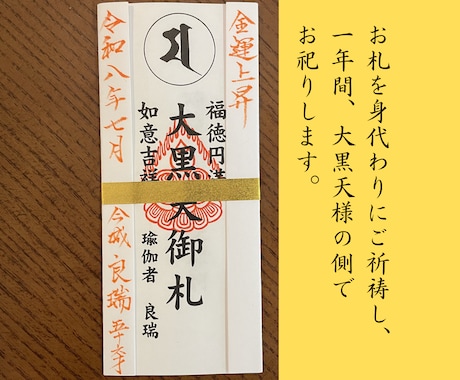 お札を身代わりにご祈祷し、
一年間、大黒天様の側で
お祀りします。
金運上昇
福徳円満
大黒天御札
如意吉祥
瑜伽者 良瑞
令和八年七月
今城 良瑞 五十六才